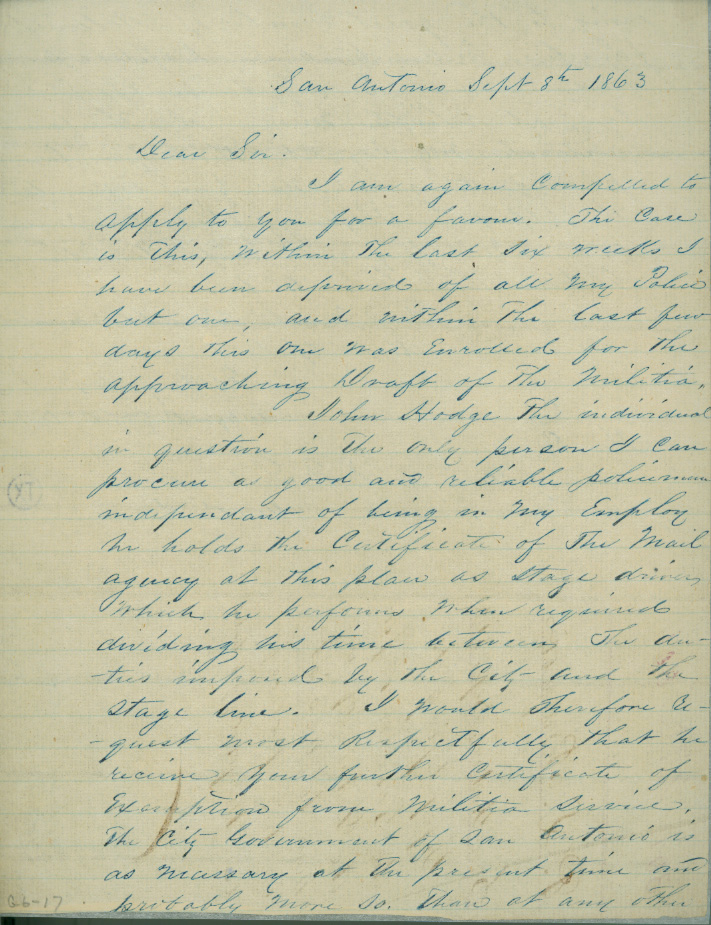 San Antonio Sept 8th 1863
Dear Sir.
I am again Compelled to
apply to you for a favour. The Case
is this, Within the last Six weeks I
have been deprived of all my Police
but one, and within the last few
days this one was Enrolled for the
approaching Draft of the Militia.
John Hodge the individual
in question is the only person I can
procure as good and reliable policeman
independant of being in my Employ
he holds the Certificate of The Mail
agency at this place as stage driver,
Which he performs When required
dividing his time between The du-
-ties imposed by the City and the
stage line. I would Therefore re-
-quest most Respectfully that he
receive your further Certificate of
Exemption from Militia Service.
The City Government of San Antonio is
as necessary at the present time and
probably more so. than at any other
Q6-17